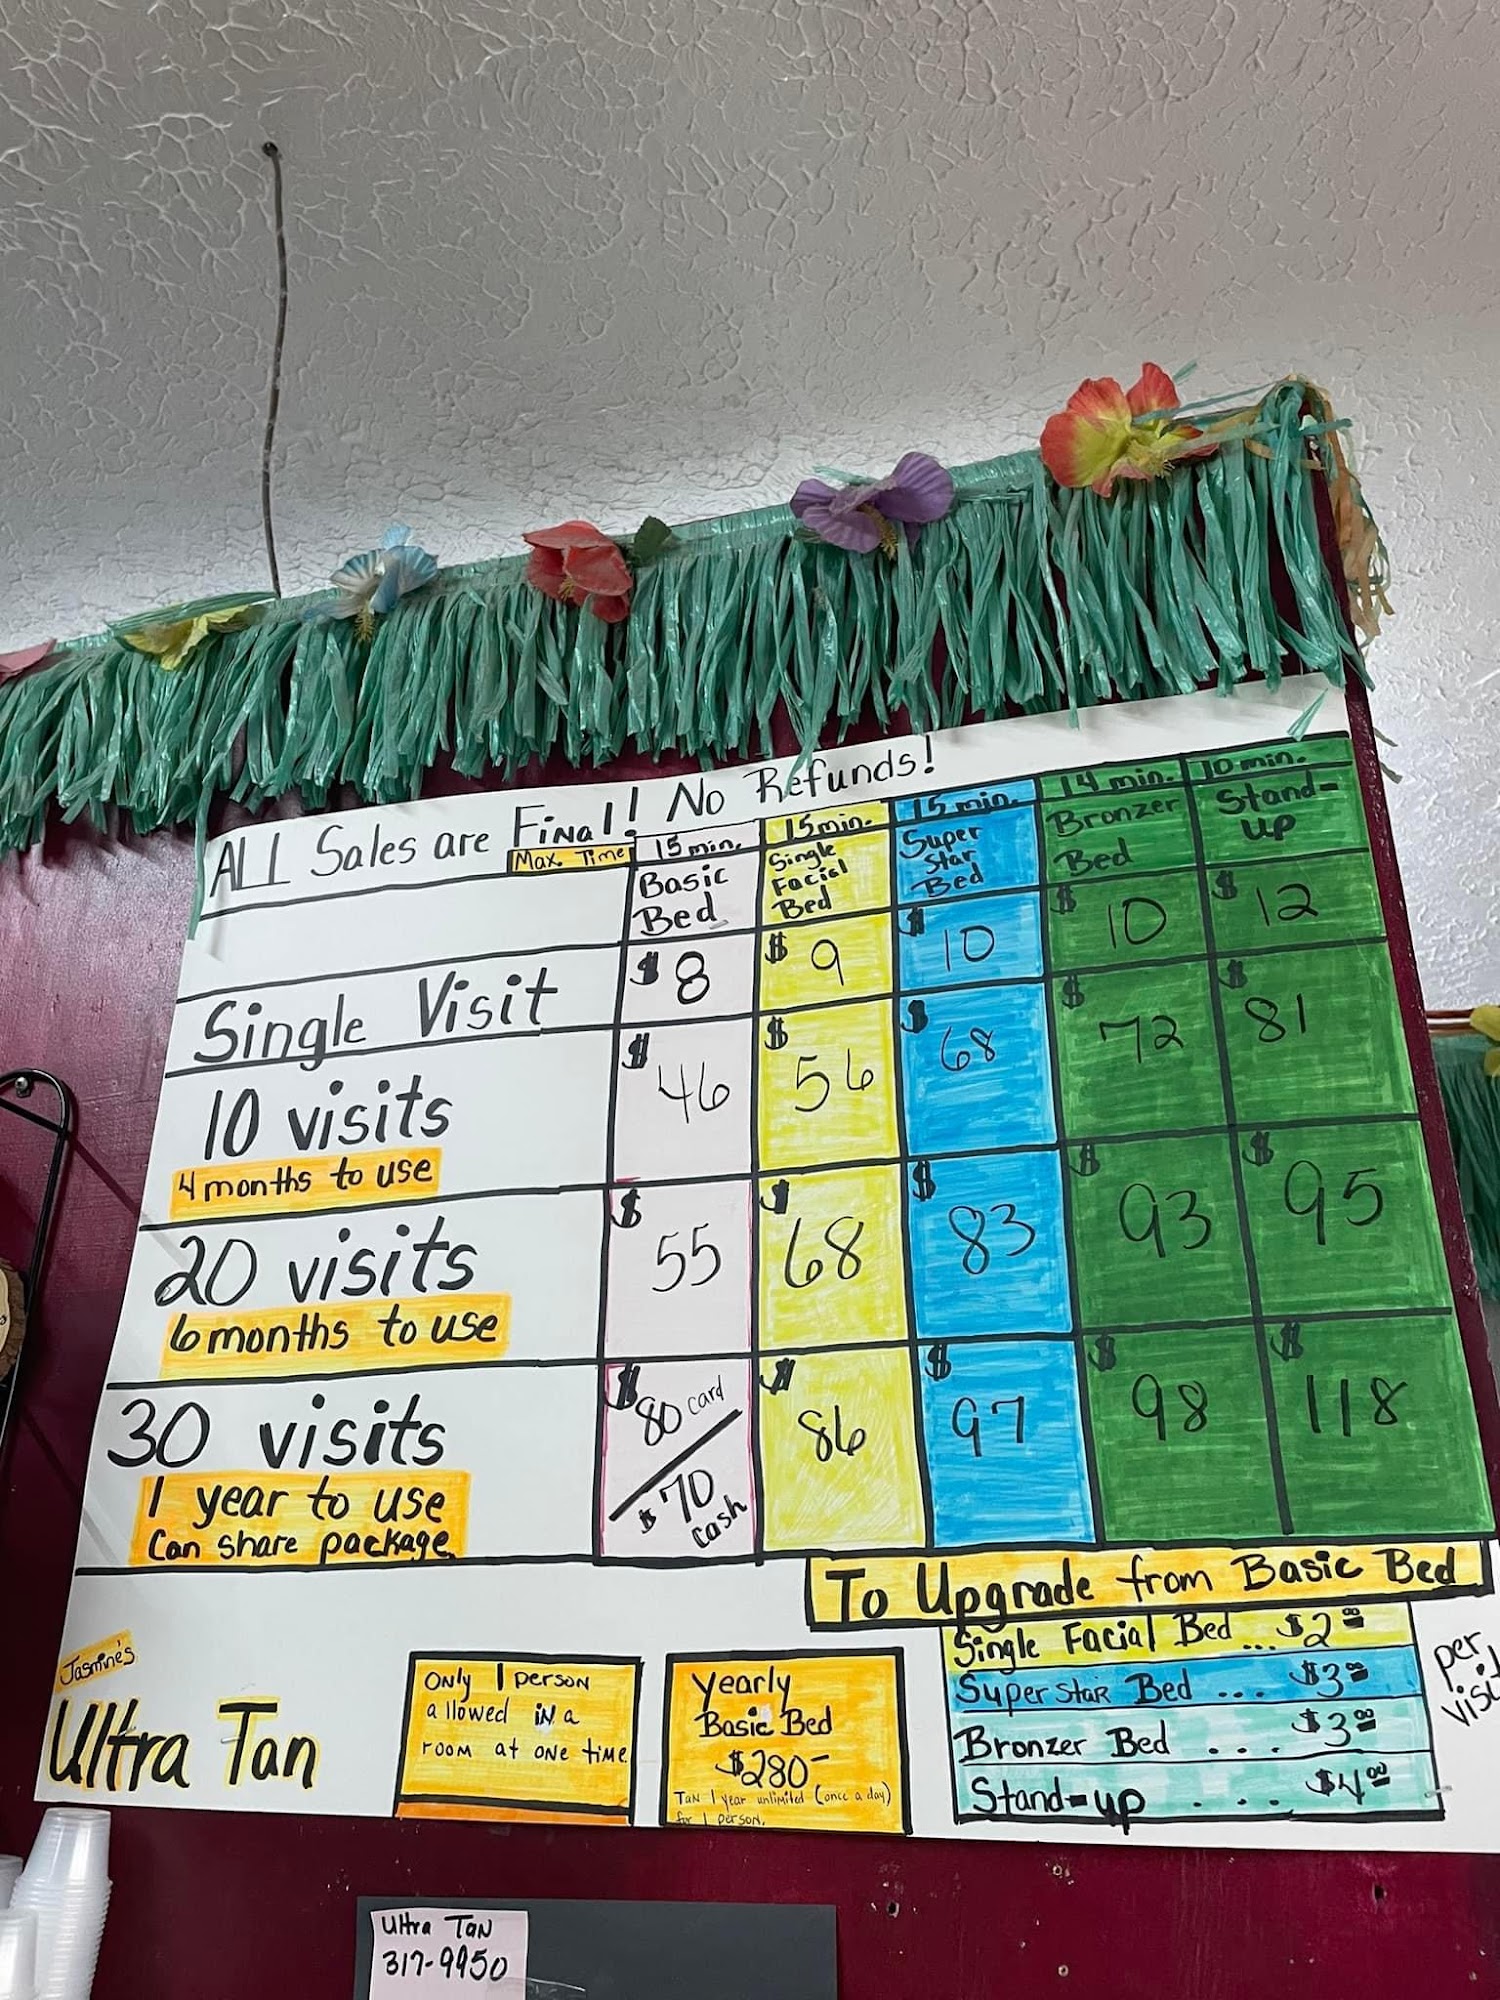 ALL Sales are Final! No Refunds!
Max. Time 15 min. 15 min. 15 min. 14 min. 10 min.
Basic Bed Single Facial Bed Super Star Bed Bronzer Bed Stand-up
Single Visit $8 $9 $10 $10 $12
10 visits $46 $56 $68 $72 $81
4 months to use
20 visits $55 $68 $83 $93 $95
6 months to use
30 visits $80 card / $70 cash $86 $97 $98 $118
1 year to use
Can share package
To Upgrade from Basic Bed
Single Facial Bed ... $2.00
Super Star Bed ... $3.00
Bronzer Bed .... $3.00
Stand-up .... $4.00
per visit
Jasmine's
Ultra Tan
Only 1 person
allowed in a
room at one time.
Yearly
Basic Bed
$280-
Tan 1 year unlimited (once a day)
for 1 person.
Ultra Tan
317-9950